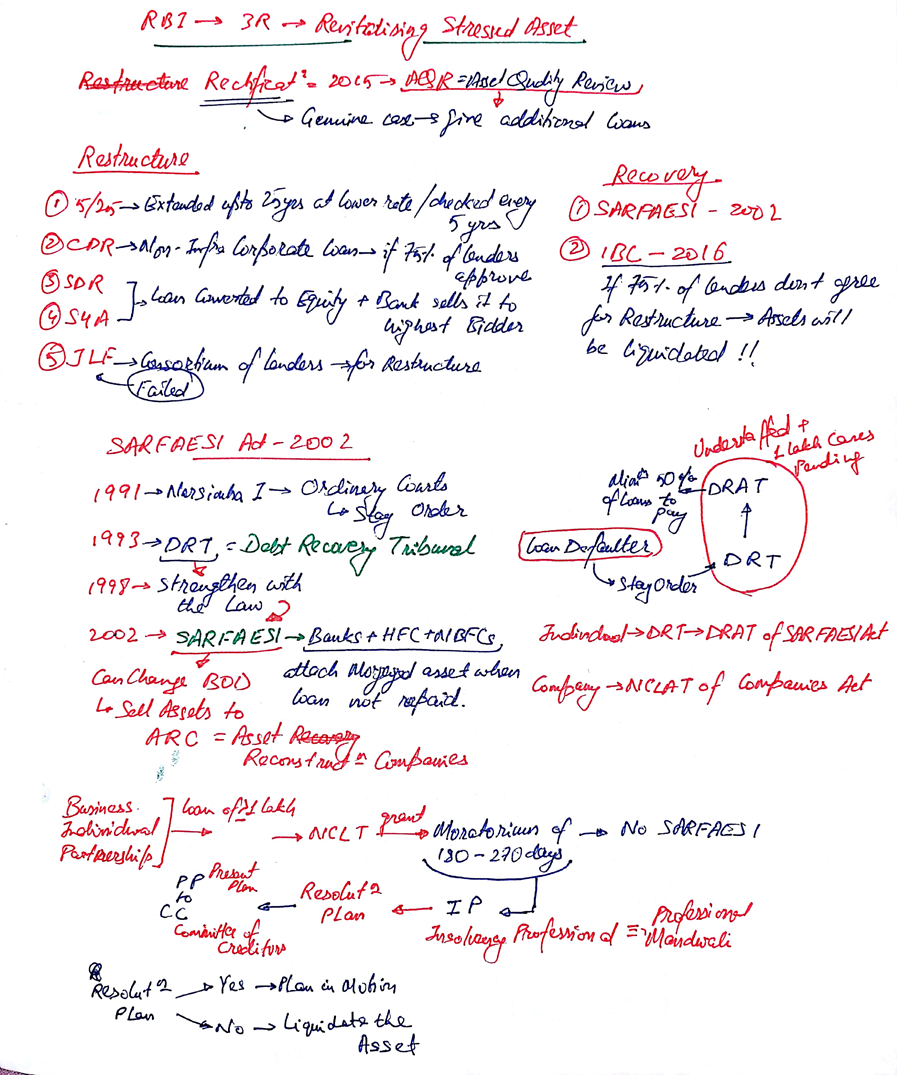 RBI → 3R → Revitalising Stressed Asset
Restructure Rectificatⁿ = 2015 → AQR = Asset Quality Review
↳ Genuine case → give additional loans
Restructure
① 5/25 → Extended upto 25yrs at lower rate / checked every
5 yrs
② CDR → Non-Infra Corporate Loan → if 75% of lenders
approve
③ SDR
④ S4A
Loan Converted to Equity + Bank sells it to
highest Bidder
⑤ JLF → Consortium of lenders → for Restructure
Failed
Recovery
① SARFAESI - 2002
② IBC - 2016
If 75% of lenders don't agree
for Restructure → Assets will
be liquidated !!
SARFAESI Act - 2002
1991 → Narsimha I → Ordinary Courts
↳ Stay Order
1993 → DRT = Debt Recovery Tribunal
1998 → Strengthen with
the Law
2002 → SARFAESI → Banks + HFC + NBFCs
attach Mogaged asset when
loan not repaid.
Can Change BOD
↳ Sell Assets to
ARC = Asset Recovery
Reconstructⁿ Companies
Understaffed +
1 lakh Cases
Pending
Minᵐ 50%
of loans to
pay
DRAT
↑
DRT
Loan Defaulter
↳ Stay Order →
Individual → DRT → DRAT of SARFAESI Act
Company → NCLAT of Companies Act
Business
Individual
Partnership
Loan of ≥1 lakh
→ NCLT grant → Moratorium of → No SARFAESI
180 - 270 days
PP Present
Plan
to
CC
Committee of
Creditors
← Resolutⁿ
Plan
← IP ←
Insolvency Professional = Professional
Mandwali
Resolutⁿ
Plan
→ Yes → Plan in Motion
→ No → Liquidate the
Asset